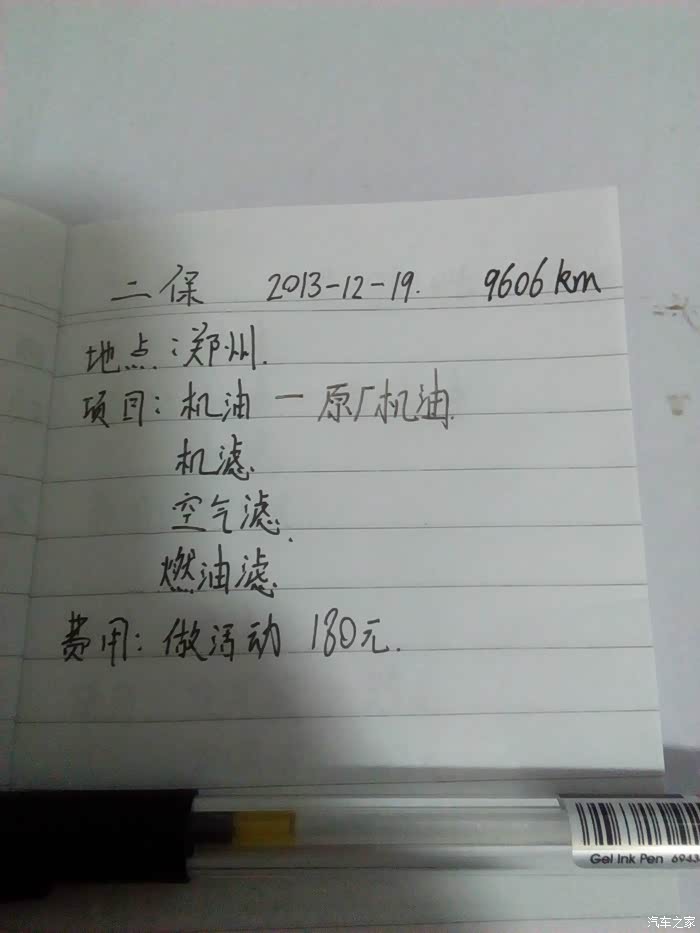 二保 2013-12-19. 9606km
地点:郑州.
项目:机油 — 原厂机油.
机滤.
空气滤.
燃油滤.
费用:做活动 180元.
Gel Ink Pen 6943
汽车之家